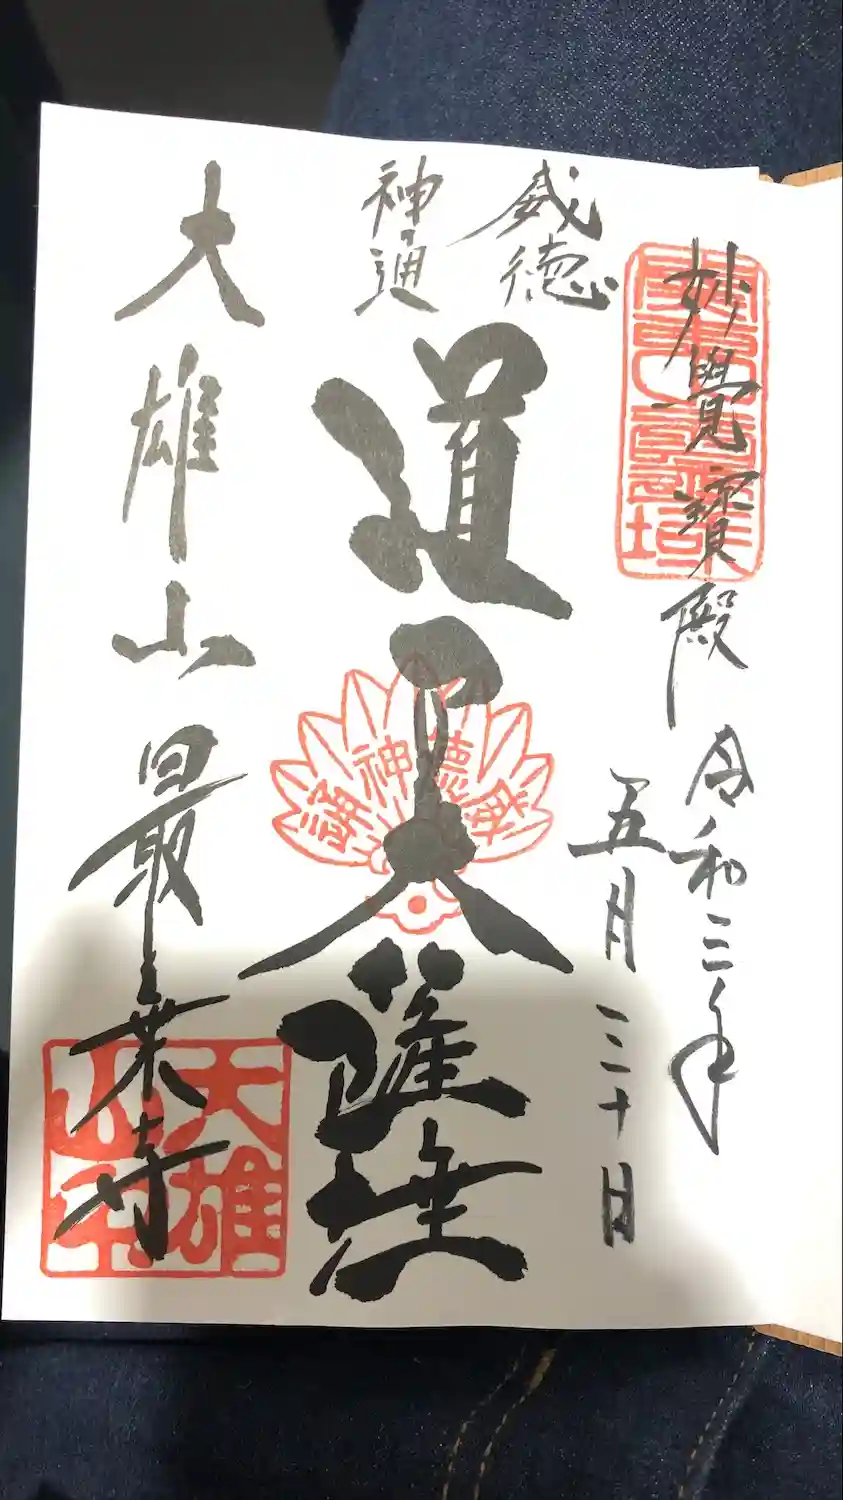 妙覺寳殿
令和三年
五月三十日
威徳
神通
道了大薩埵
威徳神通
大雄山最乗寺
大雄山印